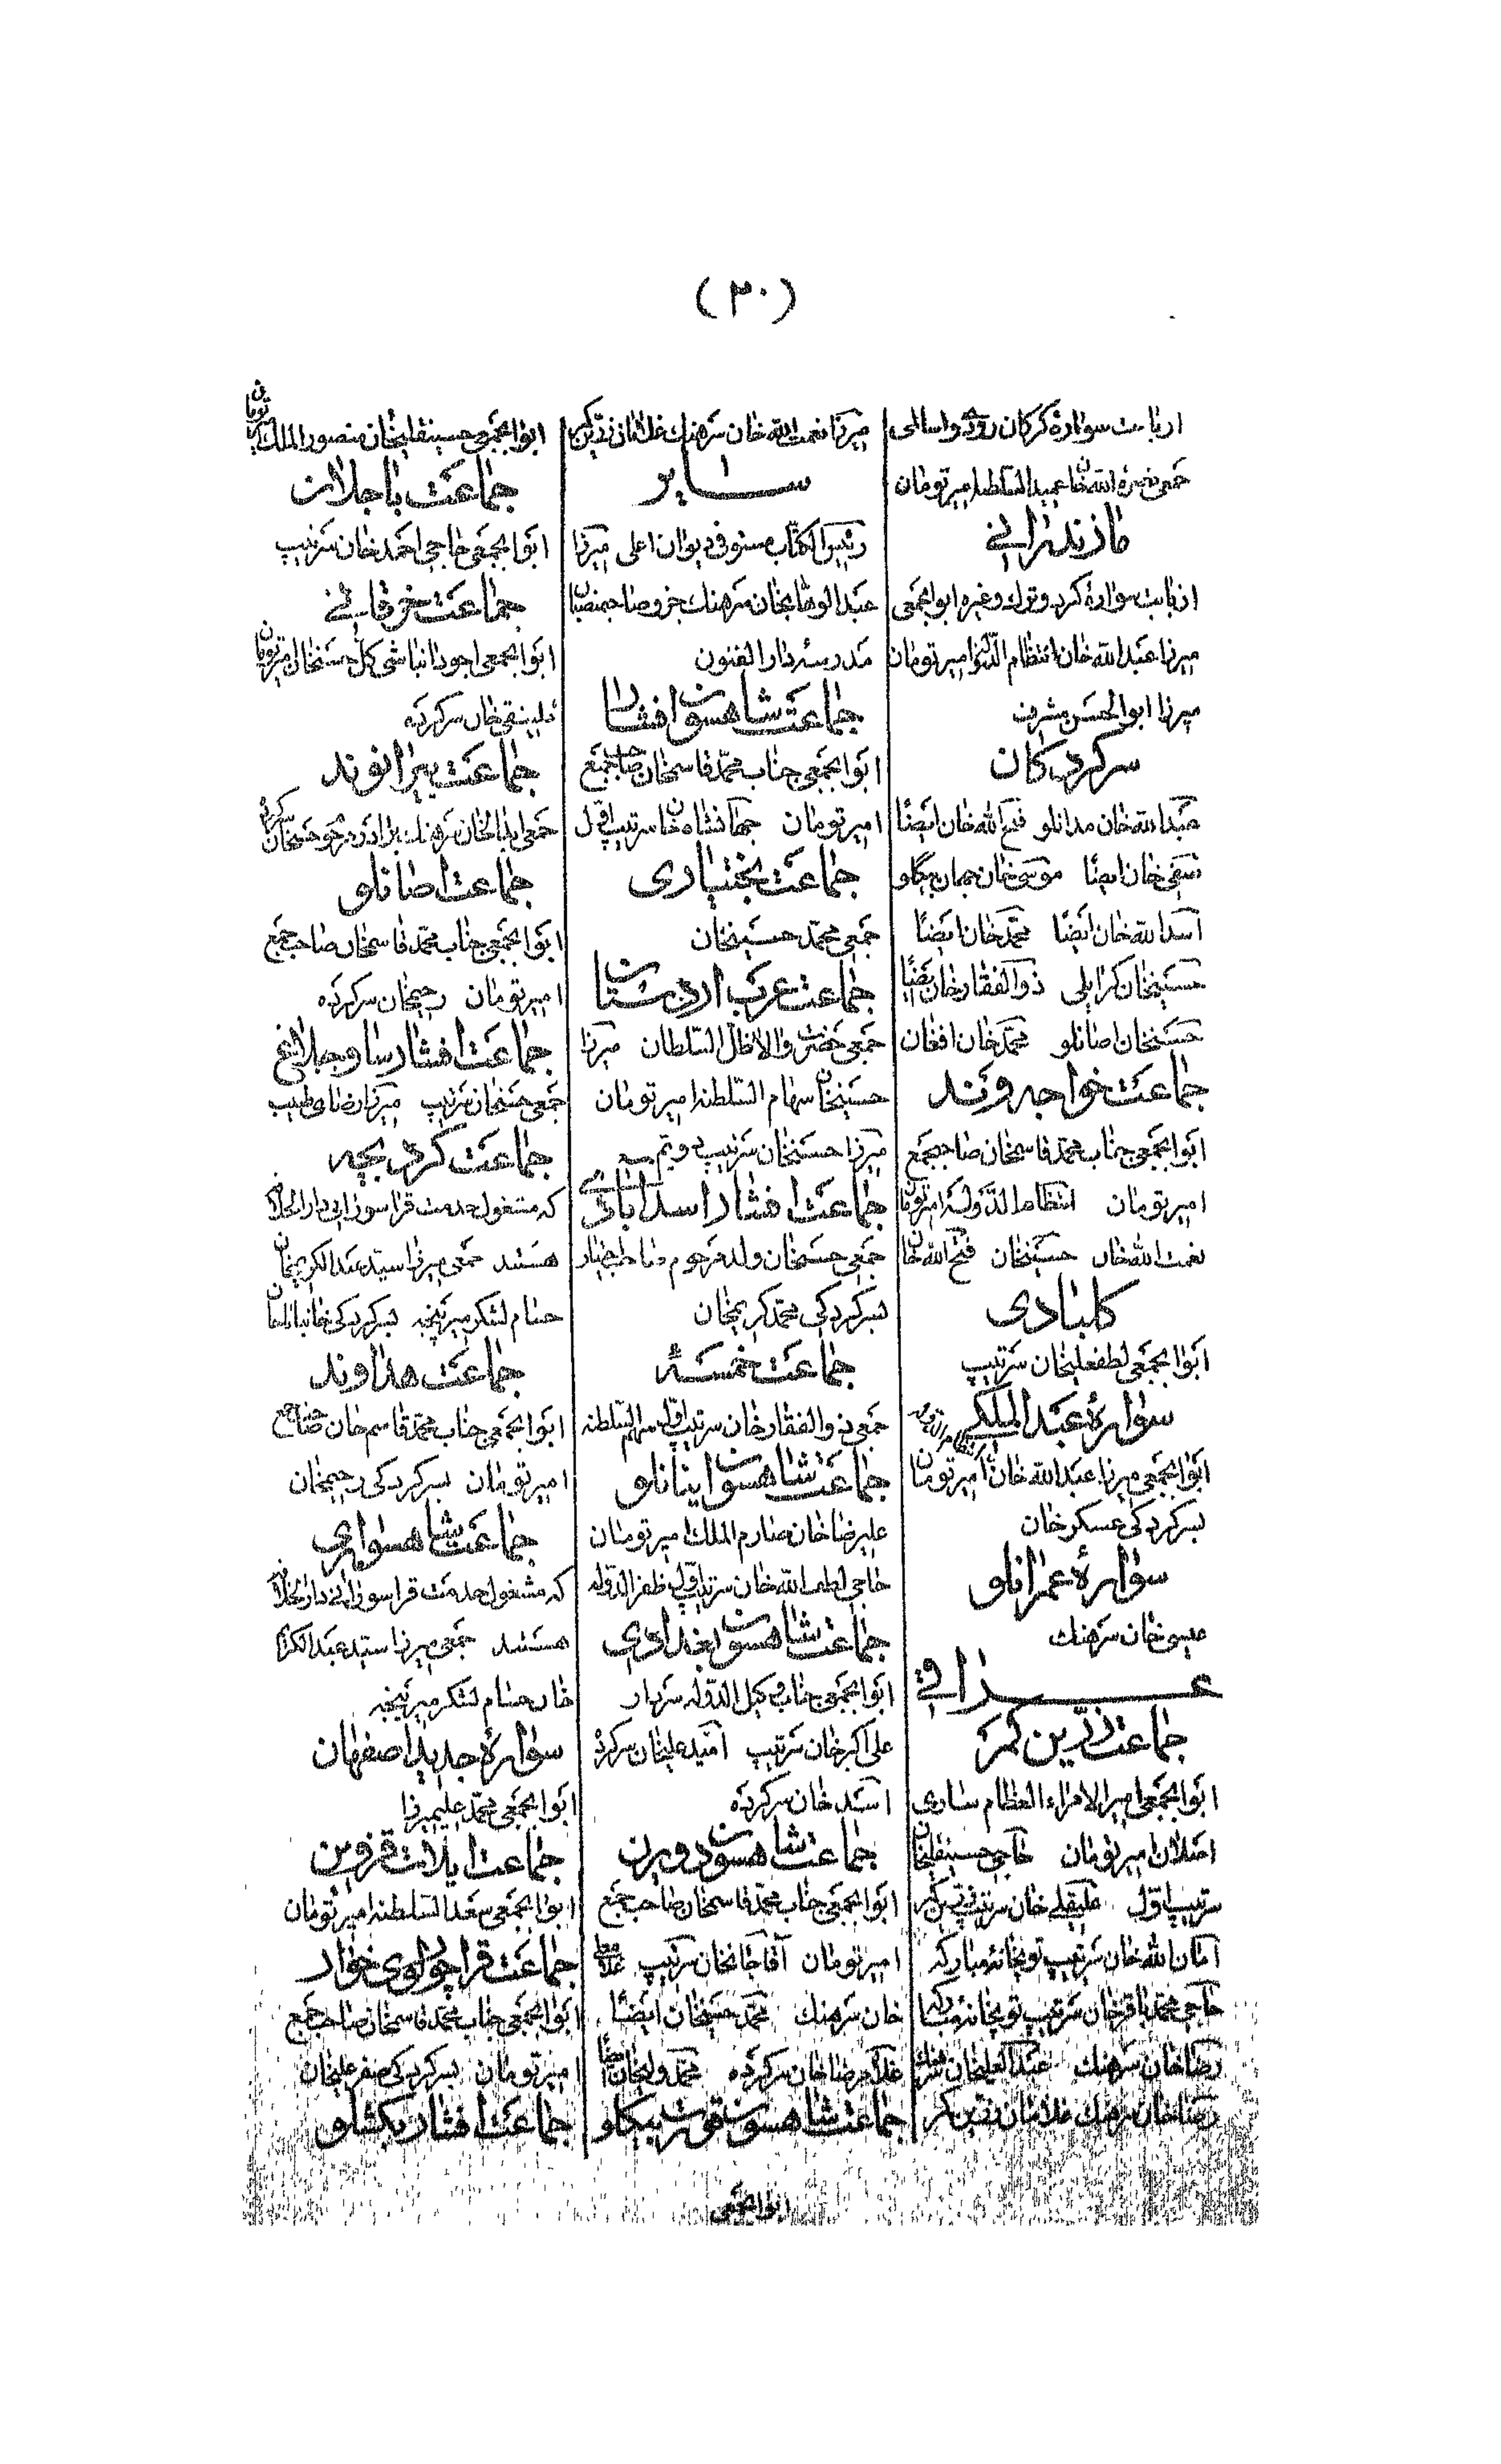 (۳۰)
از بابت سواره کرکان رودی و اسالمی
جمعی نصرة الله خان عمید السلطنه امیرتومان
مازندرانی
از بابت سواره کرد و ترک و غیره ابوابجمعی
میرزا عبدالله خان انتظام الدوله امیرتومان
میرزا ابوالحسن مشرف
سرکردگان
عبدالله خان مدانلو فتح الله خان ایضا
نقی خان ایضا موسی خان جهان بیگلو
اسدالله خان ایضا محمد خان ایضا
حسینخان کرایلی ذوالفقار خان ایضا
حسنخان اصانلو محمد خان افغان
جماعت خواجه وند
ابوابجمعی جناب محمد قاسمخان صاحبجمع
امیرتومان انتظام الدوله امیرتومان
نعمت الله خان حسینخان فتح الله خان
کلبادی
ابوابجمعی لطفعلیخان سرتیپ
سواره عبدالملکی
ابوابجمعی میرزا عبدالله خان انتظام الدوله امیرتومان
بسرکردگی عسکر خان
سواره عمرانلو
عیسی خان سرهنک
عراقی
جماعت زرین کمر
ابوابجمعی امیرالامراء العظام ساری
اصلان امیرتومان حاجی حسینقلیخان
سرتیپ اول علیقلی خان سرتیپ
امان الله خان سرتیپ توپخانه مبارکه
حاجی محمد باقر خان سرتیپ توپخانه مبارکه
رضا خان سرهنک عبدالعلیخان سرهنک
رضا خان سرهنک غلامان
میرزا نعمت الله خان سرهنک غلامان
سایر
رئیس الکتاب مستوفی دیوان اعلی میرزا
عبدالوهابخان سرهنک جزو صاحبمنصبان
مدرسه دارالفنون
جماعت شاهسون افشار
ابوابجمعی جناب محمد قاسمخان صاحبجمع
امیرتومان جهانشاه خان سرتیپ اول
جماعت بختیاری
جمعی محمد حسینخان
جماعت عرب اردستان
جمعی حضرت والا ظل السلطان میرزا
حسینخان سهام السلطنه امیرتومان
میرزا حسنخان سرتیپ دویم
جماعت افشار اسدآبادی
جمعی حسنخان ولد مرحوم
بسرکردگی محمد کریمخان
جماعت خمسه
جمعی ذوالفقار خان سرتیپ اول سهم السلطنه
جماعت شاهسون اینانلو
علیرضا خان صارم الملک امیرتومان
حاجی لطف الله خان سرتیپ اول ظفر الدوله
جماعت شاهسون بغدادی
ابوابجمعی جناب وکیل الدوله سردار
علی اکبر خان سرتیپ امید علیخان سرکرده
اسد خان سرکرده
جماعت شاهسون دویرن
ابوابجمعی جناب محمد قاسمخان صاحب جمع
امیرتومان آقا جانخان سرتیپ
خان سرهنک محمد حسنخان ایضا
غلامرضا خان سرکرده محمد ولیخان ایضا
جماعت شاهسون قورت بیگلو
ابوابجمعی
ابوابجمعی حسینقلیخان منصور الملک امیرتومان
جماعت باجلان
ابوابجمعی حاجی احمد خان سرتیپ
جماعت خرقانی
ابوابجمعی اجودانباشی کل حسنخان امیرتومان
سرکرده
جماعت بیرانوند
جماعت اصانلو
ابوابجمعی جناب محمد قاسمخان صاحب جمع
امیرتومان رحیمخان سرکرده
جماعت افشار ساوجبلاغ
جمعی حسنخان سرتیپ میرزا رضای طبیب
جماعت کرد بچه
که مشغول خدمت قراسورانی دارالخلافه
هستند جمعی میرزا سید عبدالکریمخان
حسام لشکر میرپنجه بسرکردگی
جماعت هداوند
ابوابجمعی جناب محمد قاسم خان صاحبجمع
امیرتومان بسرکردگی رحیمخان
جماعت شاهسواری
که مشغول خدمت قراسورانی دارالخلافه
هستند جمعی میرزا سید عبدالکریم
خان حسام لشکر میرپنجه
سواره جدید اصفهان
ابوابجمعی محمد علیمیرزا
جماعت ایلات قزوین
ابوابجمعی سعد السلطنه امیرتومان
جماعت قراچورلوی خوار
ابوابجمعی جناب محمد قاسمخان صاحب جمع
امیرتومان بسرکردگی صفر علیخان
جماعت افشار بکشلو